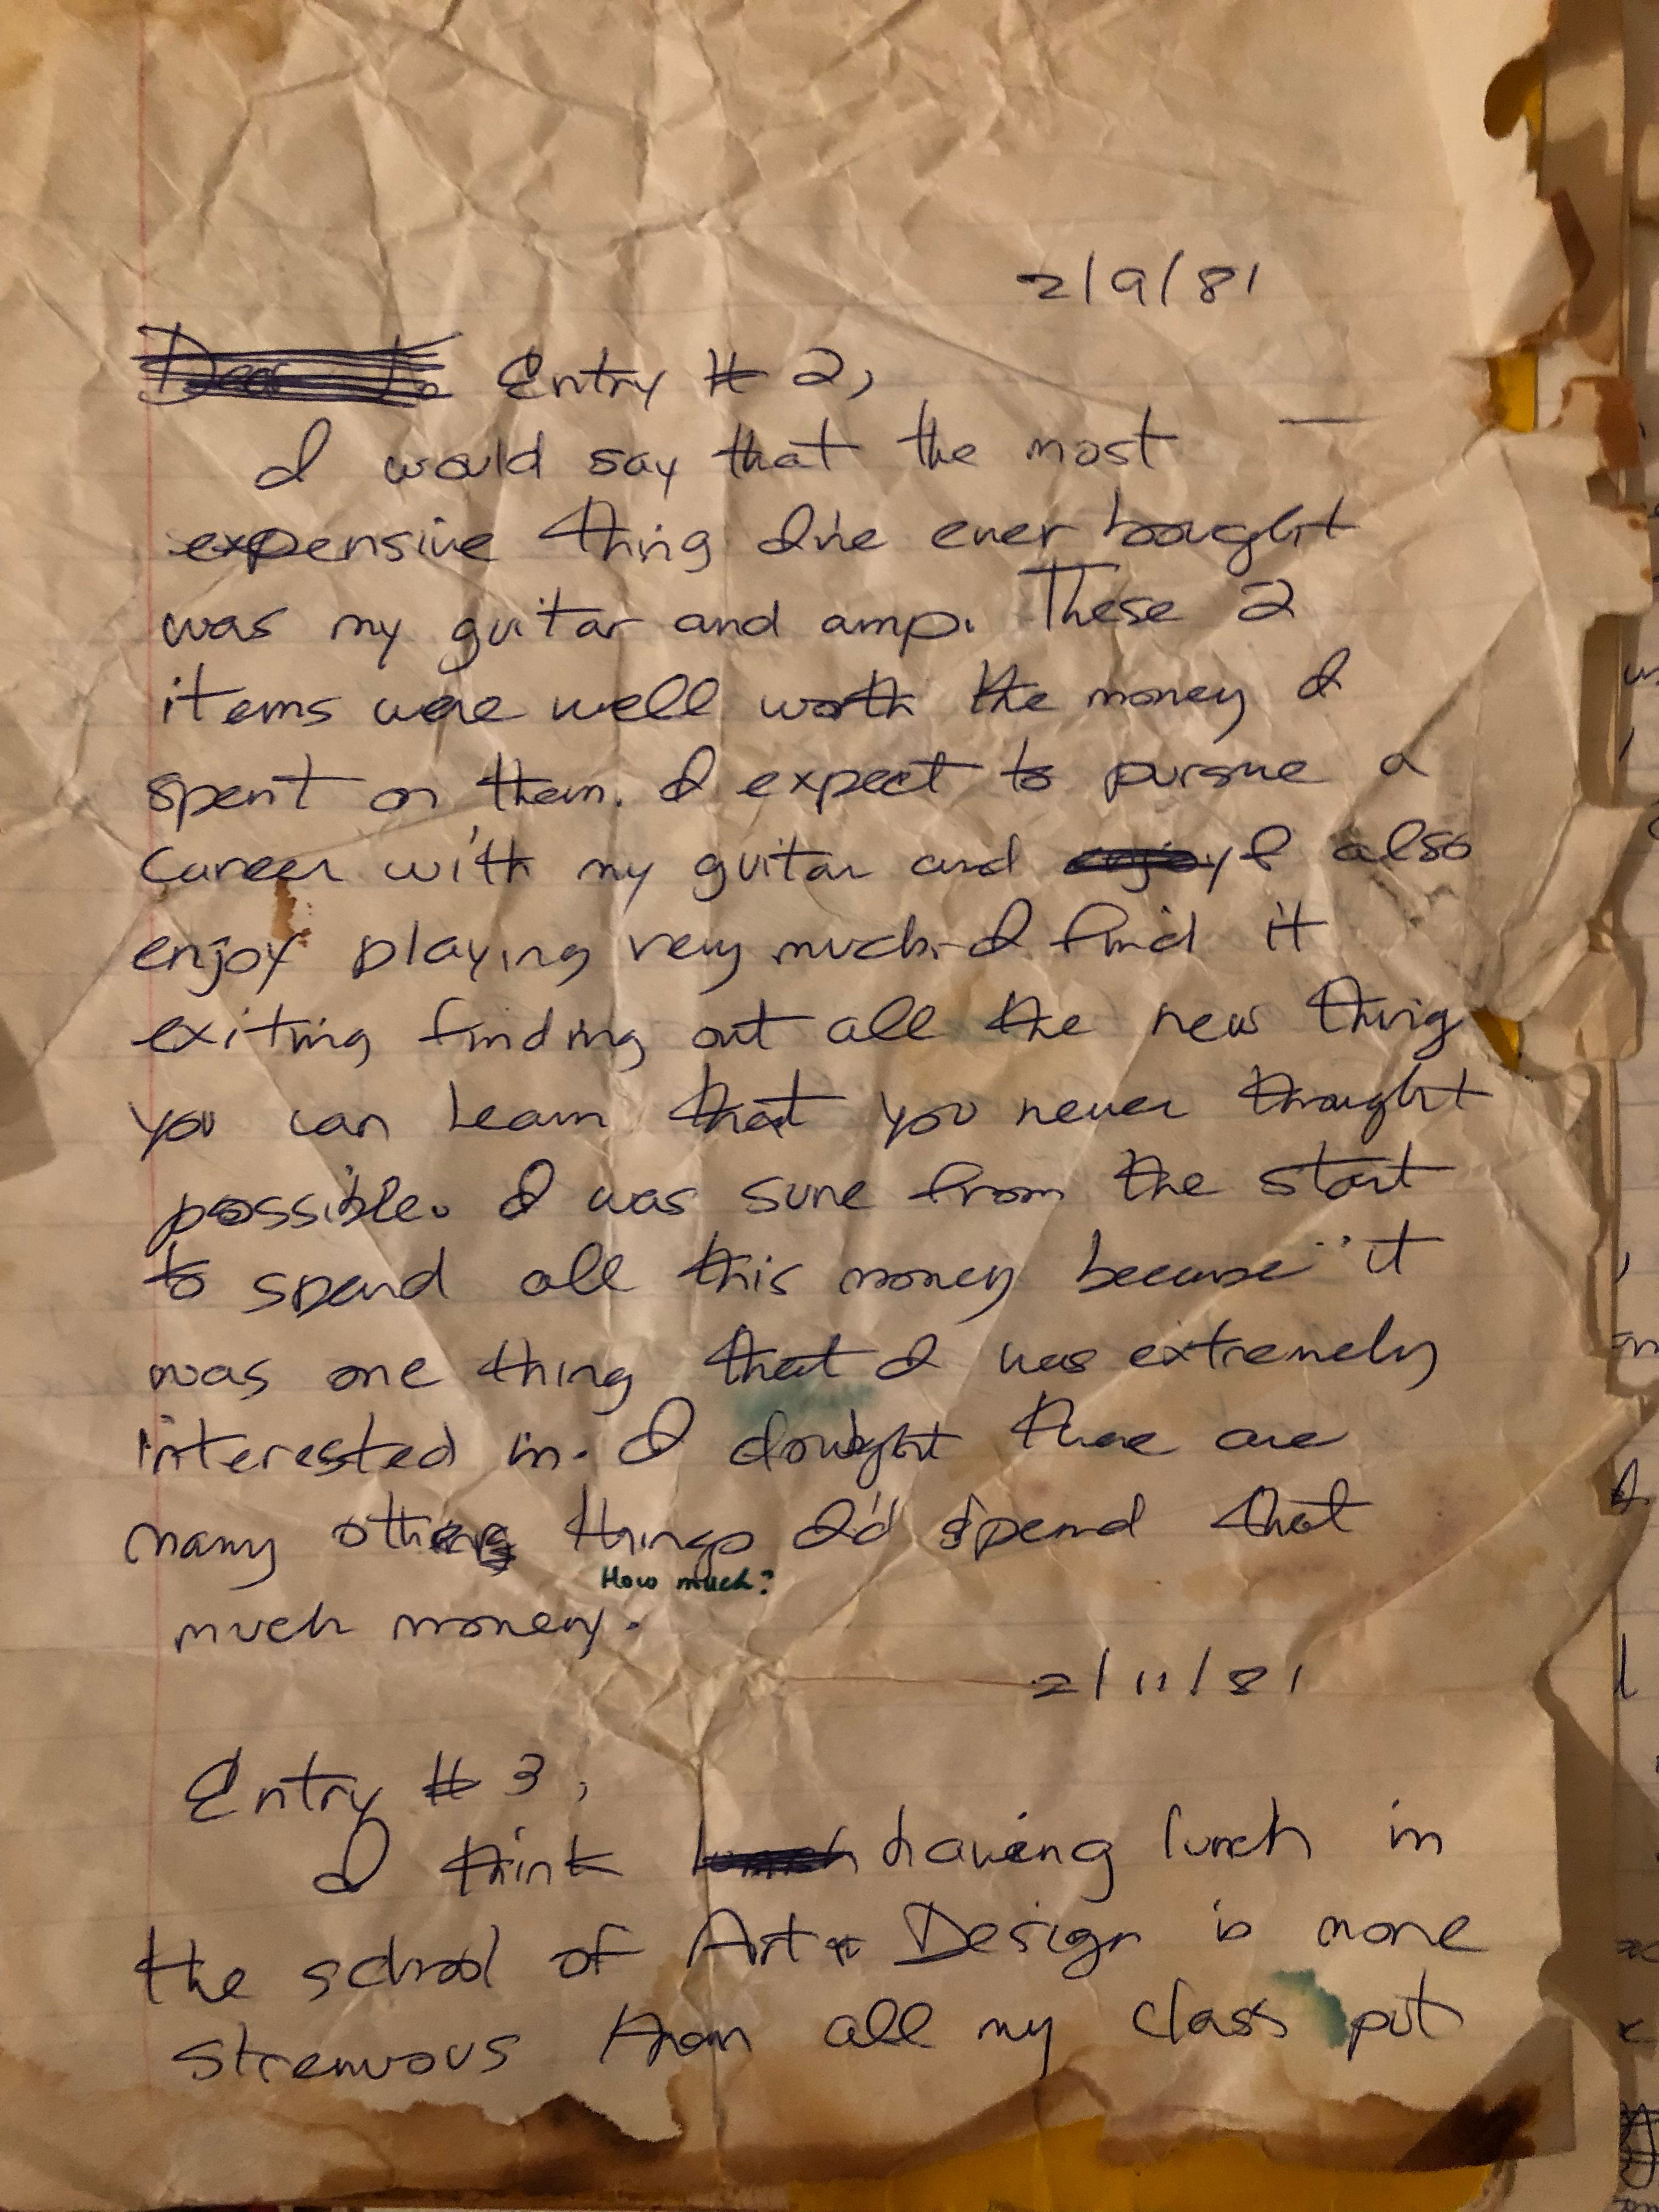 2/9/81
Entry # 2,
I would say that the most
expensive thing I've ever bought
was my guitar and amp. These 2
items were well worth the money I
spent on them. I expect to pursue a
career with my guitar and I also
enjoy playing very much. I find it
exiting finding out all the new thing
you can learn that you never thought
possible. I was sure from the start
to spend all this money because it
was one thing that I was extremely
interested in. I doubght there are
many other things I'd spend that
How much?
much money.
2/11/81
Entry # 3,
I think having lunch in
the school of Art + Design is more
strenuous than all my class put